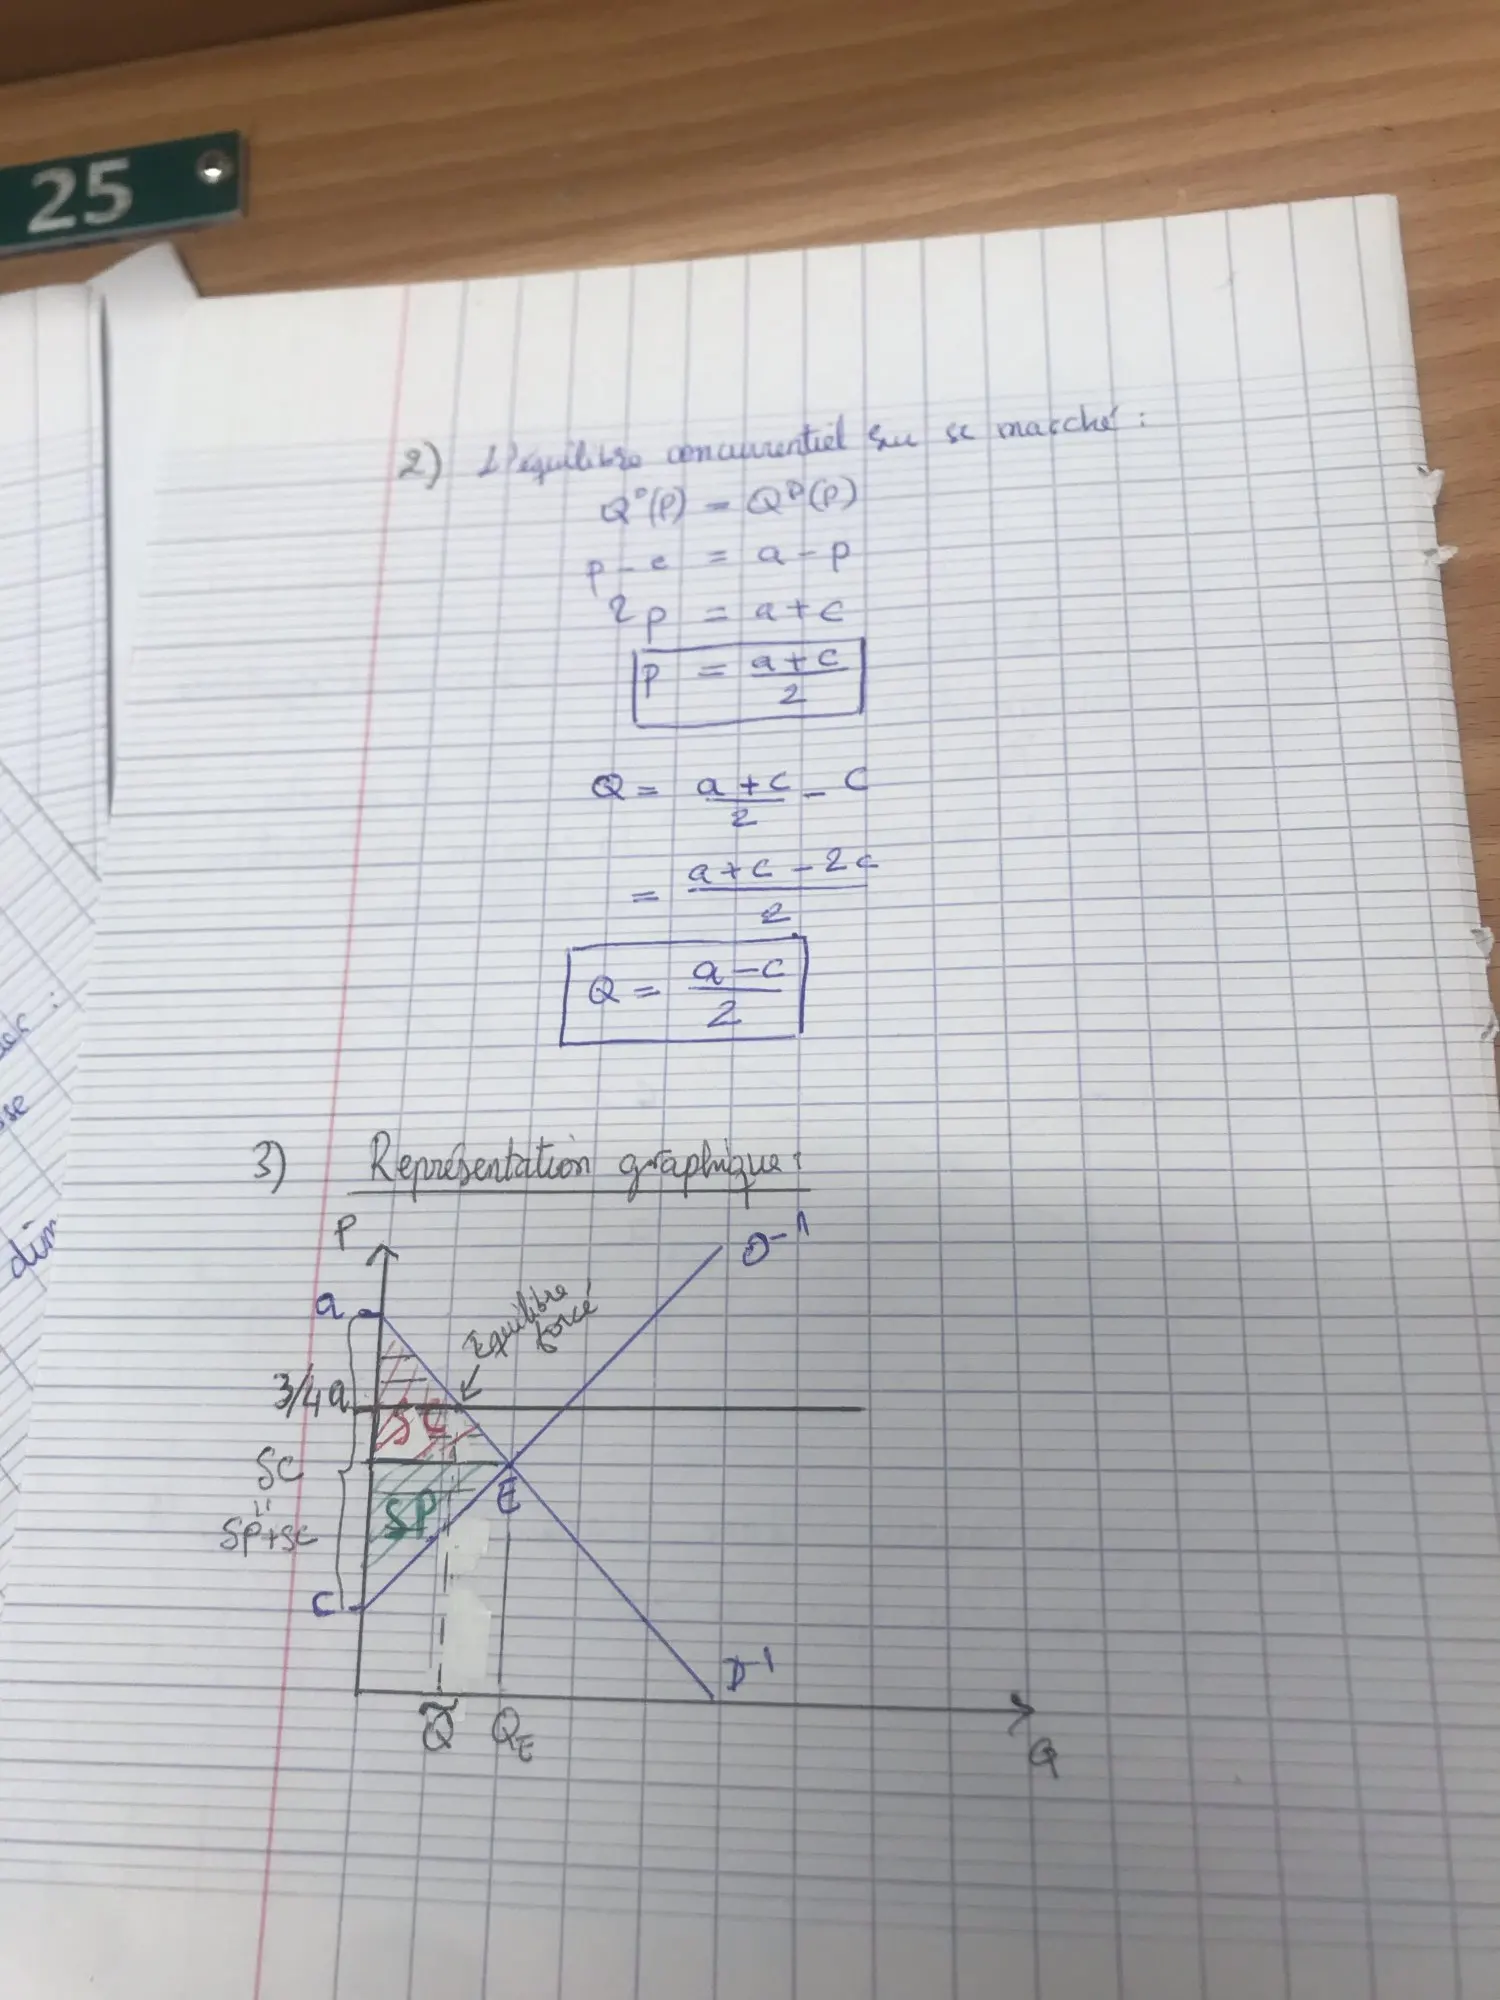 25
2) L'équilibre concurrentiel sur se marché :
Q°(P) = Q^D(P)
p - c = a - p
2p = a + c
P = a+c/2
Q = a+c/2 - C
= a+c-2c/2
Q = a-c/2
3) Représentation graphique :
P
O⁻¹
a
Equilibre
forcé
3/4a
SC
SC
E
"
SP
SP+SC
C
D⁻¹
Q̃
Q_E
Q
se
dim